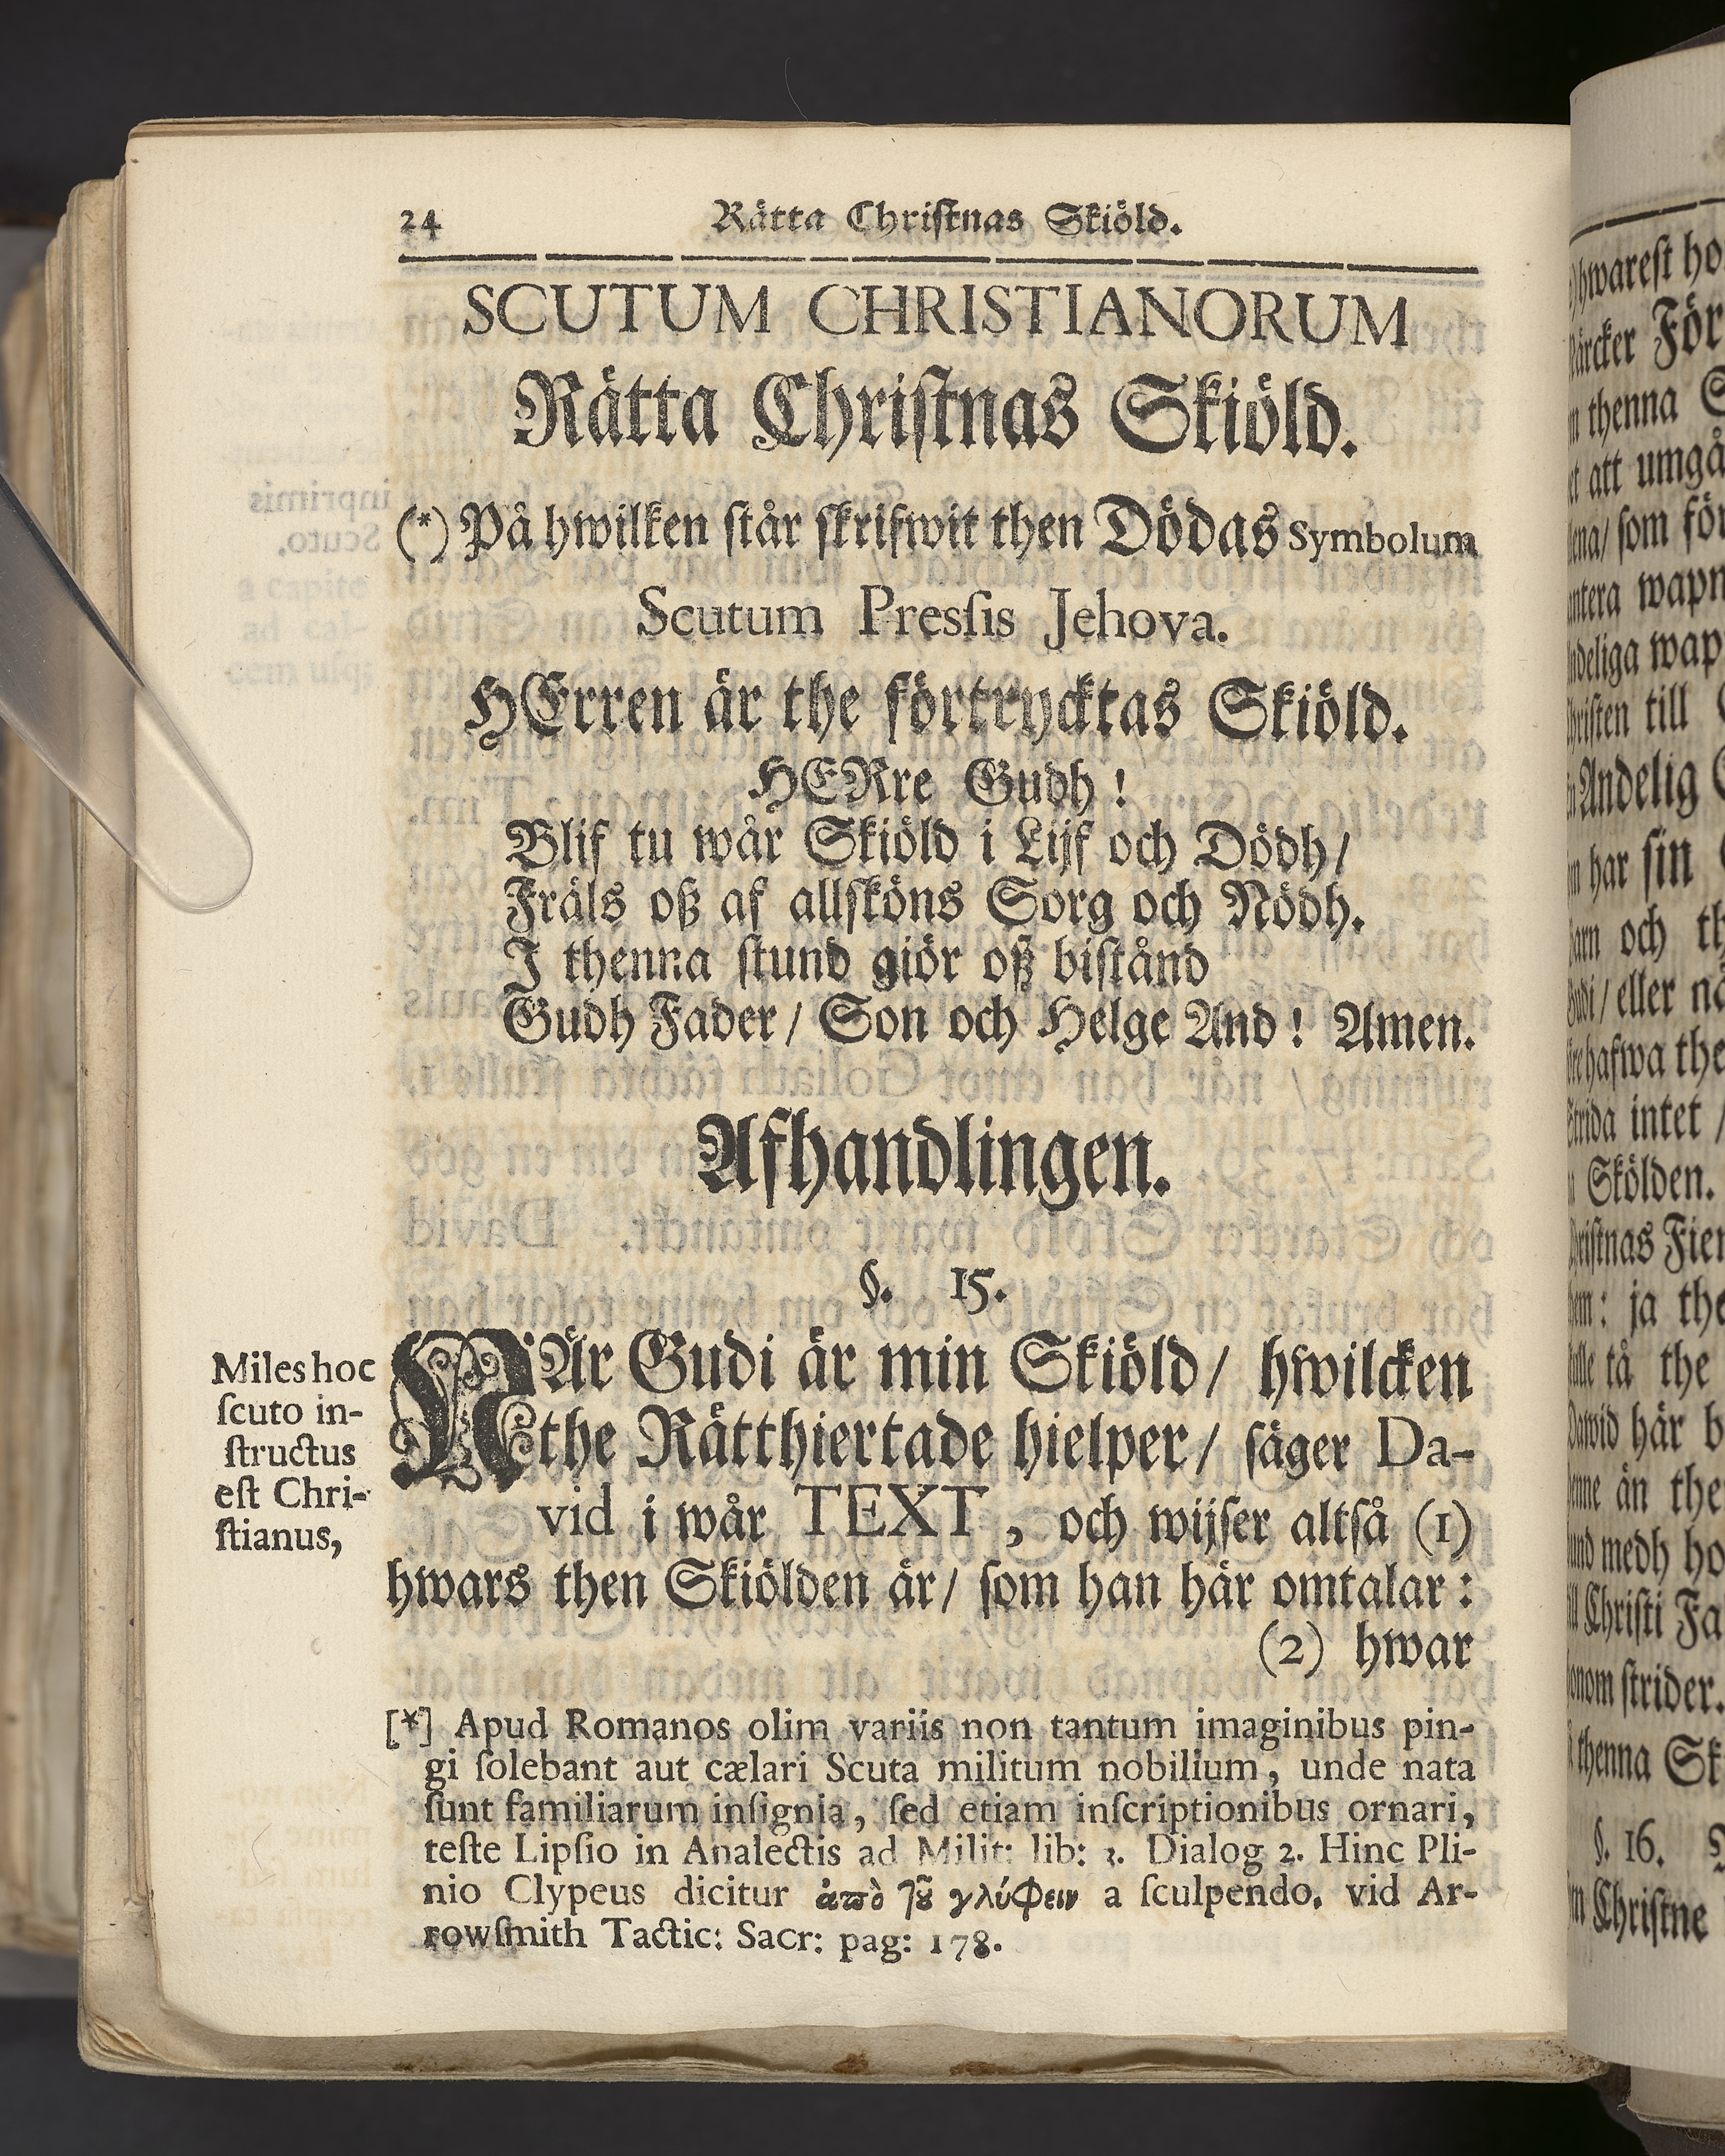 24 Rätta Chriſtnas Skiöld.
SCUTUM CHRISTIANORUM
Rätta Chriſtnas Skiöld.
(*) På hwilken ſtår ſkrifwit then Dödas Symbolum
Scutum Presſis Jehova.
HErren är the förtrycktas Skiöld.
HERre Gudh!
Blif tu wår Skiöld i Lijf och Dödh/
Fräls oß af allſköns Sorg och Nödh.
I thenna ſtund giör oß biſtånd
Gudh Fader/ Son och Helge And! Amen.
Afhandlingen.
§. 15.
Miles hoc
ſcuto in-
ſtructus
eſt Chri-
ſtianus,
När Gudi är min Skiöld/ hwilcken
the Rätthiertade hielper/ ſäger Da-
vid i wår TEXT, och wijſer altſå (1)
hwars then Skiölden är/ ſom han här omtalar:
(2) hwar
[*] Apud Romanos olim variis non tantum imaginibus pin-
gi ſolebant aut cælari Scuta militum nobilium, unde nata
ſunt familiarum inſignia, ſed etiam inſcriptionibus ornari,
teſte Lipſio in Analectis ad Milit: lib: 3. Dialog 2. Hinc Pli-
nio Clypeus dicitur ἀπὸ τῦ γλύφειν a ſculpendo. vid Ar-
rowſmith Tactic: Sacr: pag: 178.
hwareſt ho
För
thenna
att umgå
ſom för
wapn
wap
till
Andelig
har ſin
och
eller
the
intet /
Skölden.
Fier
ja the
tå the
här
än the
medh ho
Chriſti Fa
ſtrider.
thenna Sk
§. 16.
Chriſtne